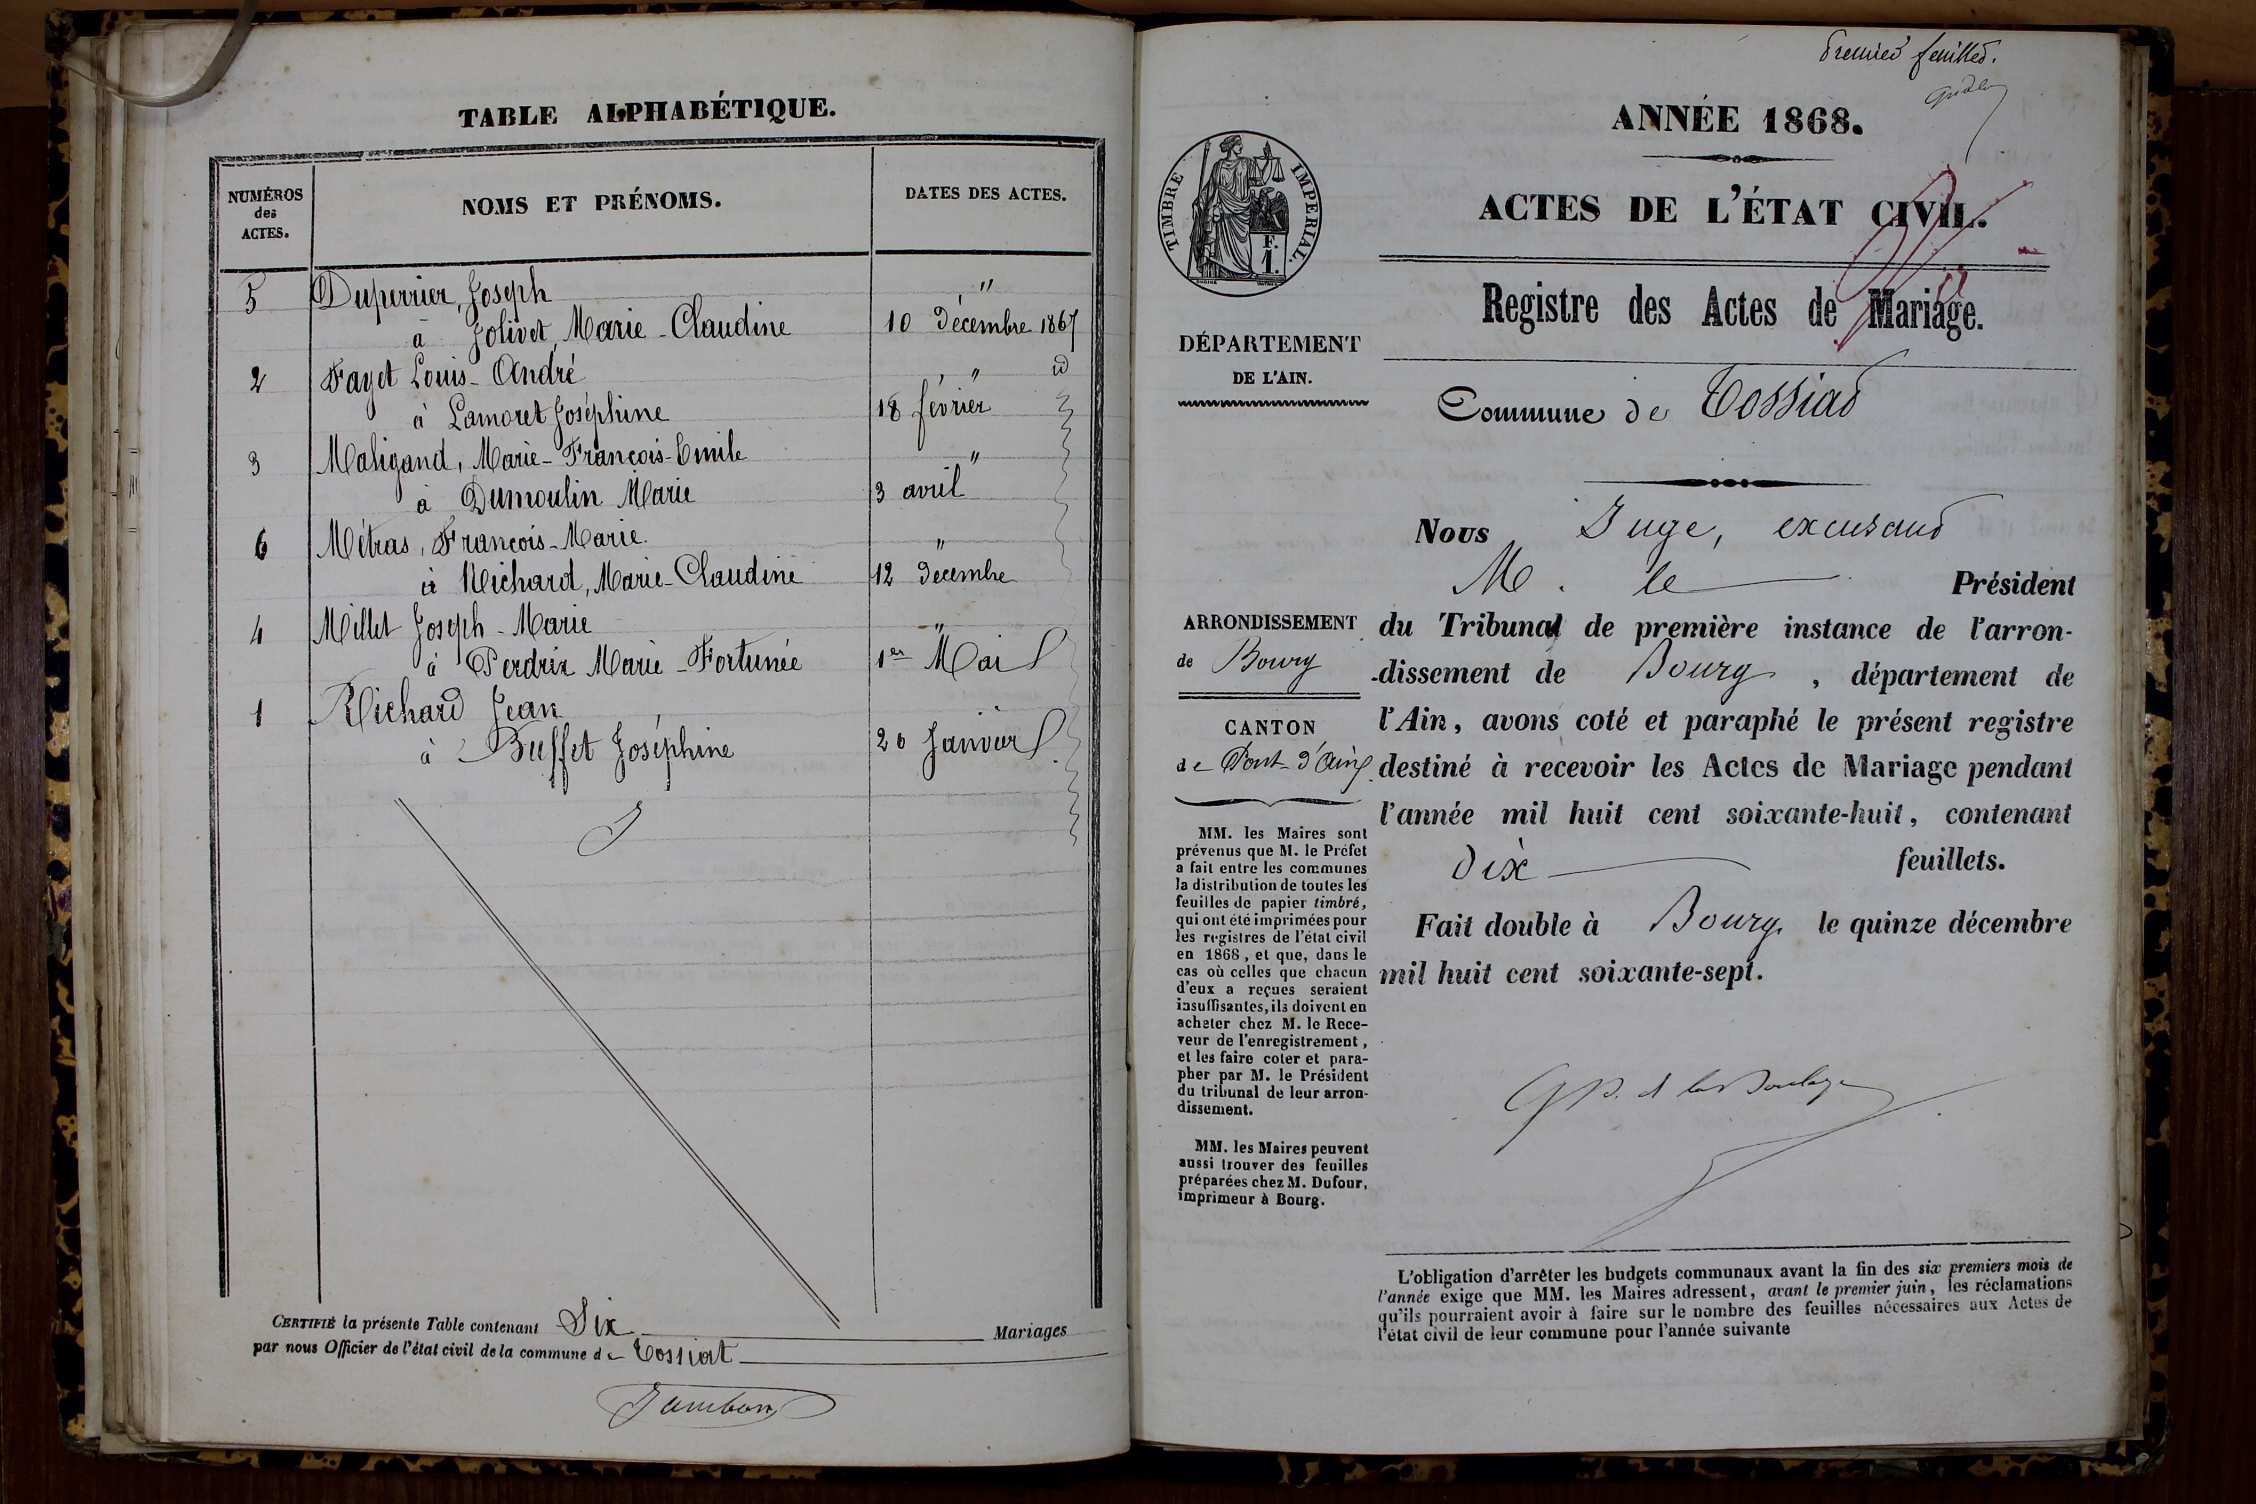 TABLE ALPHABÉTIQUE.
NUMÉROS
des
ACTES.
NOMS ET PRÉNOMS.
DATES DES ACTES.
5 Duperrier, Joseph "
à Jolivet, Marie-Claudine 10 décembre 1867
2 Fayet Louis-André " id
à Lamoret Joséphine 18 février
3 Maligand, Marie-François-Emile "
à Dumoulin Marie 3 avril
6 Métras, François-Marie. "
à Richard, Marie-Claudine 12 décembre
4 Millet Joseph-Marie "
à Perdrix Marie-Fortunée 1er Mai
1 Richard Jean "
à Buffet Joséphine 20 Janvier
CERTIFIÉ la présente Table contenant Six Mariages
par nous Officier de l'état civil de la commune de Tossiat
Jambon
Premier feuillet.
ANNÉE 1868.
ACTES DE L'ÉTAT CIVIL.
Registre des Actes de Mariage.
TIMBRE IMPERIAL.
F.
1.
DÉPARTEMENT
DE L'AIN.
Commune de Tossiat
Nous Juge, excusant
M. le Président
ARRONDISSEMENT
de Bourg
CANTON
de Pont-d'Ain
du Tribunal de première instance de l'arron-
dissement de Bourg, département de
l'Ain, avons coté et paraphé le présent registre
destiné à recevoir les Actes de Mariage pendant
l'année mil huit cent soixante-huit, contenant
dix feuillets.
Fait double à Bourg, le quinze décembre
mil huit cent soixante-sept.
MM. les Maires sont
prévenus que M. le Préfet
a fait entre les communes
la distribution de toutes les
feuilles de papier timbré,
qui ont été imprimées pour
les registres de l'état civil
en 1868, et que, dans le
cas où celles que chacun
d'eux a reçues seraient
insuffisantes, ils doivent en
acheter chez M. le Rece-
veur de l'enregistrement,
et les faire coter et para-
pher par M. le Président
du tribunal de leur arron-
dissement.
MM. les Maires peuvent
aussi trouver des feuilles
préparées chez M. Dufour,
imprimeur à Bourg.
L'obligation d'arrêter les budgets communaux avant la fin des six premiers mois de
l'année exige que MM. les Maires adressent, avant le premier juin, les réclamations
qu'ils pourraient avoir à faire sur le nombre des feuilles nécessaires aux Actes de
l'état civil de leur commune pour l'année suivante